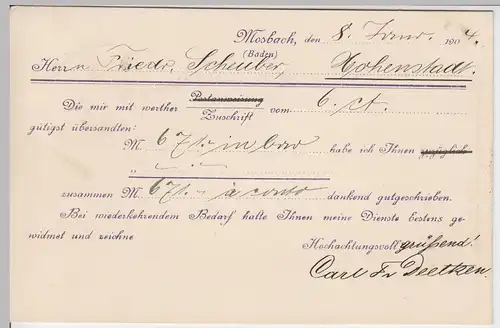 Mosbach, den 8. Januar. 1904.
(Baden)
Herrn Friedr. Scheuber, Hohenstadt.
Die mir mit werther Postanweisung
Zuschrift vom 6. ct.
gütigst übersandten:
M. 671.- in bar habe ich Ihnen zuzüglich
" - "
zusammen M. 671.- à conto dankend gutgeschrieben.
Bei wiederkehrendem Bedarf halte Ihnen meine Dienste bestens ge-
widmet und zeichne
Hochachtungsvoll grüssend!
Carl Fr Deetken.